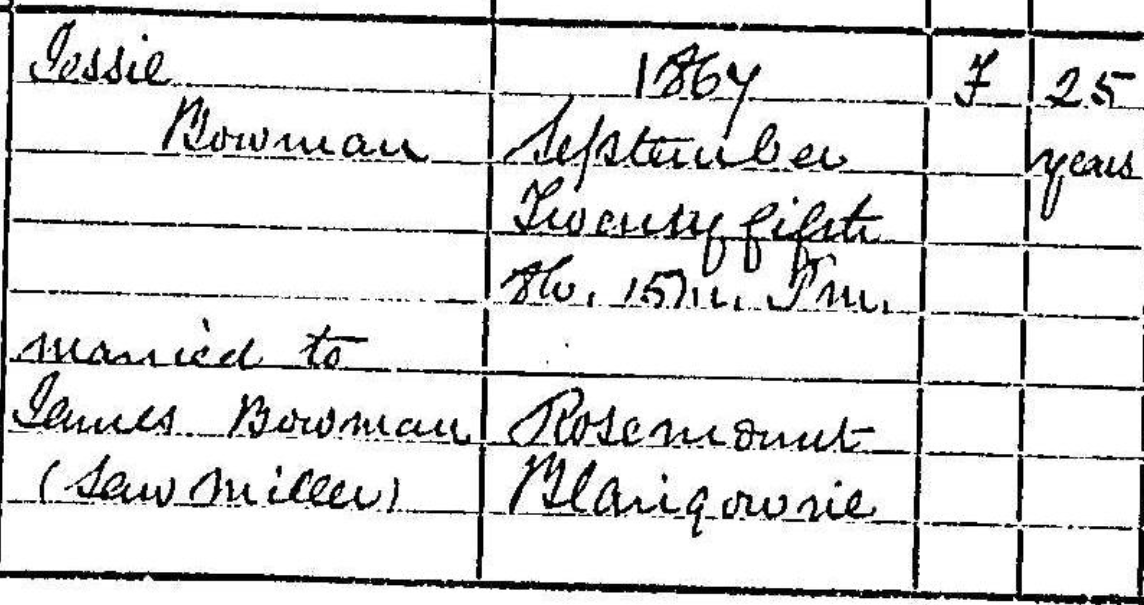 Jessie
Bowman
married to
James Bowman
(Saw Miller)
1867
September
Twenty fifth
8h. 15m. P.m.
Rosemount
Blairgowrie
F
25
years